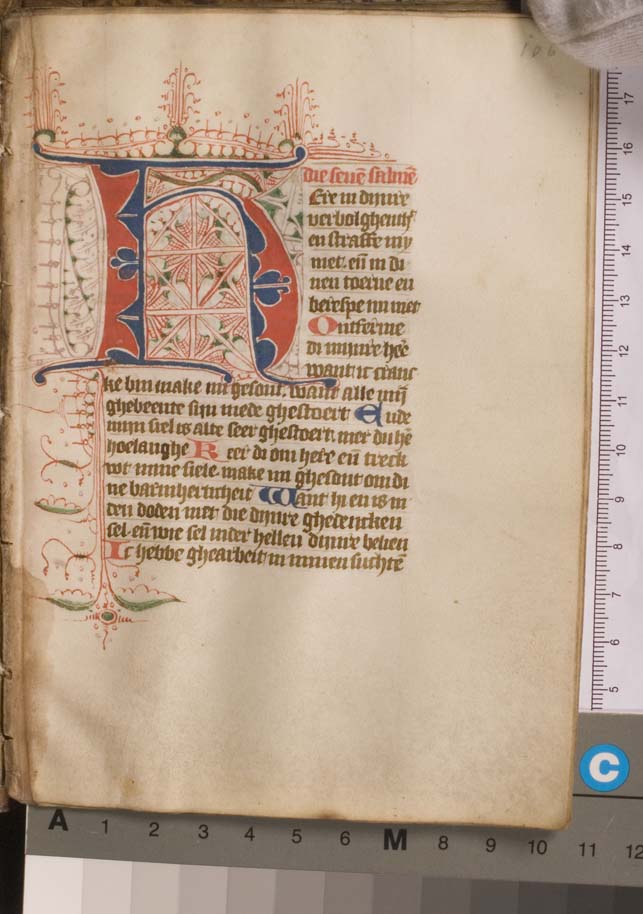 106
die seuē salmē
HEre in dijnre
verbolghenth'
en straffe my
niet. eñ in di
nen toerne en
berespe mi niet
Ontferme
di mijnre hee
want ic cranc
ke bin make mi gesont. want alle mijn
ghebeente sijn mede ghestoert Ende
mijn siel is alte seer ghestoert. mer du hē
hoelanghe Keer di om here eñ treck
wt mine siele. make mi ghesont om di
ne barmherticheit Want hi en is in
den doden niet die dijnre ghedencken
sel. eñ wie sel inder hellen dijnre belien
Ic hebbe ghearbeit in minen suchtē
17
16
15
14
13
12
11
10
9
8
7
6
5
C
A 1 2 3 4 5 6 M 8 9 10 11 12